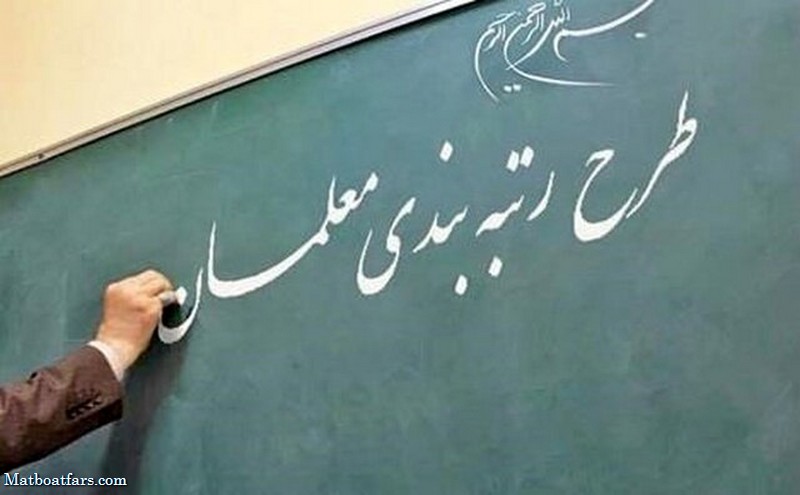 بسم الله الرحمن الرحیم
طرح رتبه بندی معلمان
Matboatfars.com